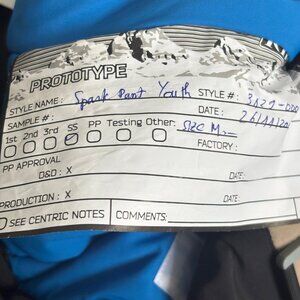 PROTOTYPE
STYLE NAME: Spark Pant Youth STYLE #:
SAMPLE #: DATE:
1st 2nd 3rd SS PP Testing Other: SIZE M
FACTORY:
PP APPROVAL
D&D: X DATE:
PRODUCTION: X DATE:
SEE CENTRIC NOTES COMMENTS: